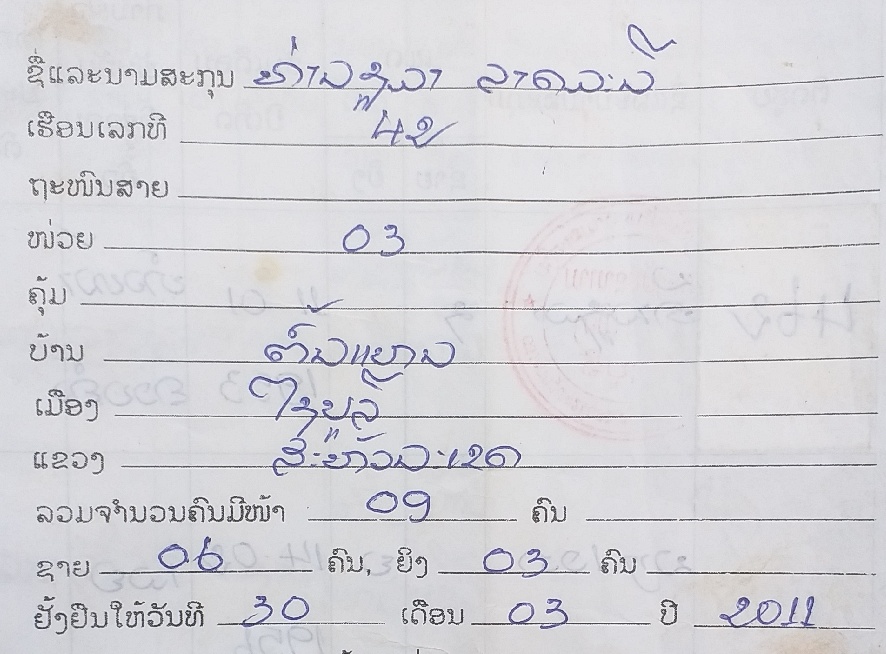 ຊື່ແລະນາມສະກຸນ ລາດວະລີ
ເຮືອນເລກທີ 42
ຖະໜົນສາຍ
ໜ່ວຍ 03
ຄຸ້ມ
ບ້ານ ຕົ້ນແຍງ
ເມືອງ ໄຊບູລີ
ແຂວງ ສະຫວັນນະເຂດ
ລວມຈຳນວນຄົນມີໜ້າ 09 ຄົນ
ຊາຍ 06 ຄົນ, ຍິງ 03 ຄົນ
ຢັ້ງຢືນໃຫ້ວັນທີ 30 ເດືອນ 03 ປີ 2011